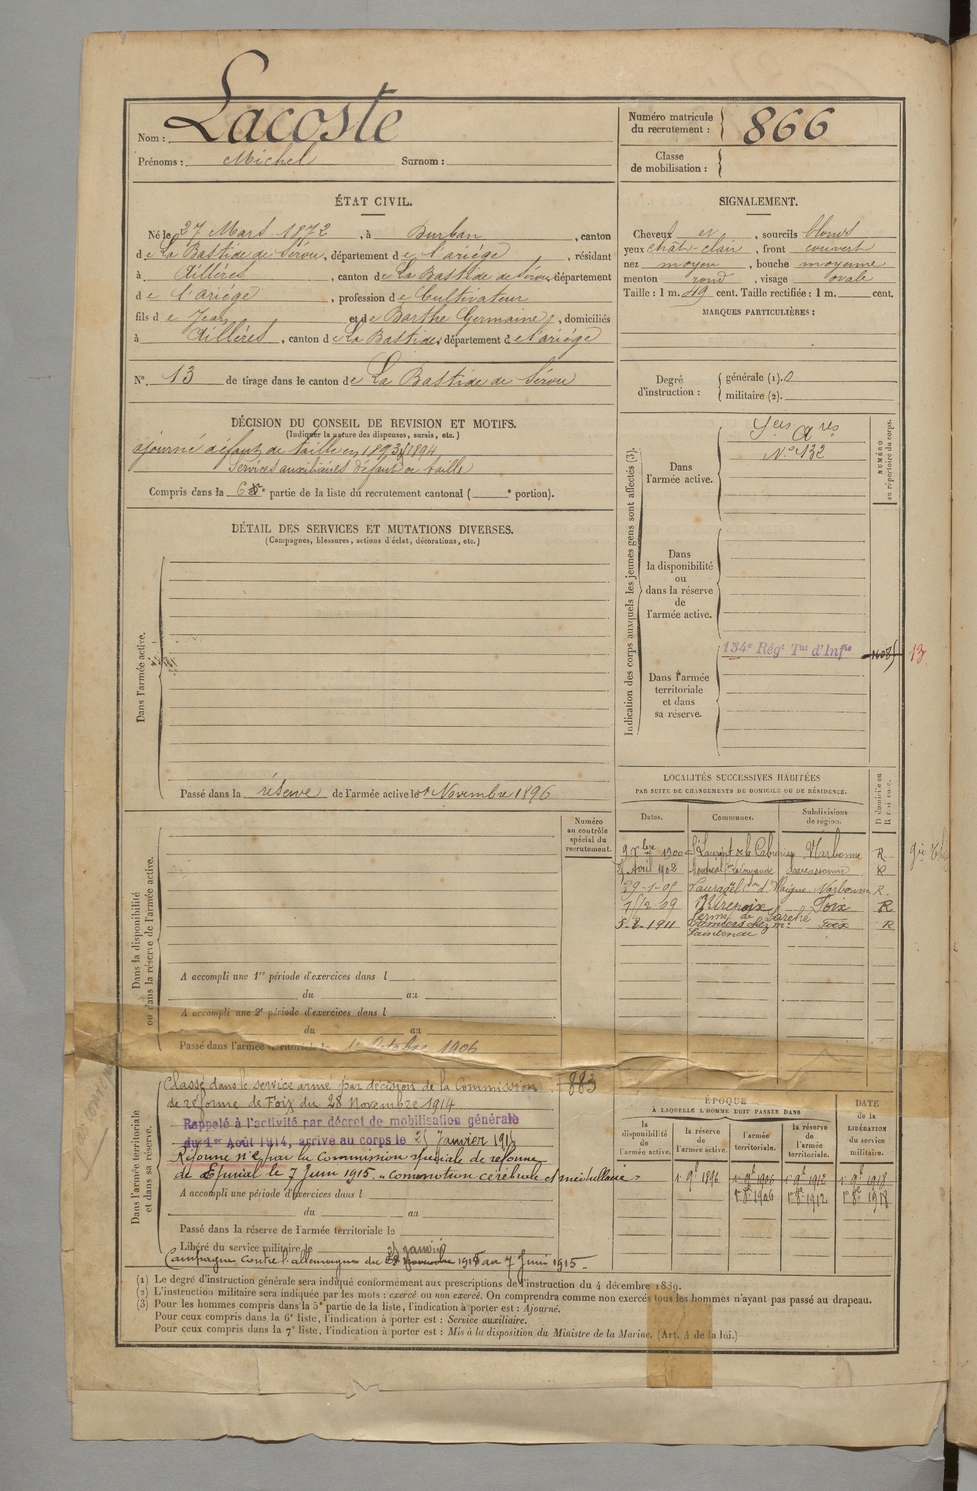 Nom : Lacoste
Prénoms : Michel Surnom :
Numéro matricule du recrutement : 866
Classe de mobilisation :
ÉTAT CIVIL.
Né le 27 Mars 1872, à Durban, canton
de La Bastide de Sérou, département de l'ariége, résidant
à Aillères, canton de La Bastide de Sérou, département
de l'ariége, profession de Cultivateur
fils de Jean et de Barthe Germaine, domiciliés
à Aillères, canton de La Bastide, département de l'ariége
N° 13 de tirage dans le canton de La Bastide de Sérou
SIGNALEMENT.
Cheveux et, sourcils blonds
yeux chât-clair, front couvert
nez moyen, bouche moyenne
menton rond, visage ovale
Taille : 1 m. 49 cent. Taille rectifiée : 1 m. cent.
MARQUES PARTICULIÈRES :
Degré d'instruction : générale (1). 0
militaire (2).
DÉCISION DU CONSEIL DE REVISION ET MOTIFS.
(Indiquer la nature des dispenses, sursis, etc.)
ajourné défaut de taille en 1893 1894
Services auxiliaires défaut de taille
Compris dans la 6e partie de la liste du recrutement cantonal ( e portion).
DÉTAIL DES SERVICES ET MUTATIONS DIVERSES.
(Campagnes, blessures, actions d'éclat, décorations, etc.)
Dans l'armée active.
Passé dans la réserve de l'armée active le 1er Novembre 1896
Indication des corps auxquels les jeunes gens sont affectés (3).
Dans l'armée active.
Sces Ares
N° 132
NUMÉRO au répertoire du corps.
Dans la disponibilité ou dans la réserve de l'armée active.
Dans l'armée territoriale et dans sa réserve.
134e Régt Tal d'Infie
1608
13
LOCALITÉS SUCCESSIVES HABITÉES
PAR SUITE DE CHANGEMENTS DE DOMICILE OU DE RÉSIDENCE.
Dates. Communes. Subdivisions de région. D domicile ou R résidence.
9 Xbre 1900 St Laurent de la Cabrerisse Narbonne R
Avril 1902 Montréal Carcassonne R
29-1-08 Narbonne R.
Mirepoix Foix R
5-2-1911 ferme de Foix R
Dans la disponibilité ou dans la réserve de l'armée active.
Numéro au contrôle spécial du recrutement.
A accompli une 1re période d'exercices dans l
du au
A accompli une 2e période d'exercices dans l
du au
Passé dans l'armée territoriale le 1er Octobre 1906
Dans l'armée territoriale et dans sa réserve.
Classé dans le service armé par décision de la Commission
883
de réforme de Foix du 28 Novembre 1914
Rappelé à l'activité par décret de mobilisation générale
du 1er Août 1914, arrivé au corps le 25 Janvier 1915
Réformé n° 2 par la Commission spéciale de réforme
de Epinal le 7 Juin 1915. "commotion cérébrale et médullaire"
A accompli une période d'exercices dans l
du au
Passé dans la réserve de l'armée territoriale le
Libéré du service militaire le
25 janvier
Campagne contre l'allemagne du 1915 au 7 Juin 1915.
ÉPOQUE
À LAQUELLE L'HOMME DOIT PASSER DANS
DATE de la LIBÉRATION du service militaire.
la disponibilité de l'armée active. la réserve de l'armée active. l'armée territoriale. la réserve de l'armée territoriale.
1er 9bre 1896 1er 9bre 1906 1er 9bre 1912 1er 9bre 1918
1er 8bre 1906 1er 8bre 1912 1er 8bre 1918
(1) Le degré d'instruction générale sera indiqué conformément aux prescriptions de l'instruction du 4 décembre 1889.
(2) L'instruction militaire sera indiquée par les mots : exercé ou non exercé. On comprendra comme non exercés tous les hommes n'ayant pas passé au drapeau.
(3) Pour les hommes compris dans la 5e partie de la liste, l'indication à porter est : Ajourné.
Pour ceux compris dans la 6e liste, l'indication à porter est : Service auxiliaire.
Pour ceux compris dans la 7e liste, l'indication à porter est : Mis à la disposition du Ministre de la Marine. (Art. 4 de la loi.)